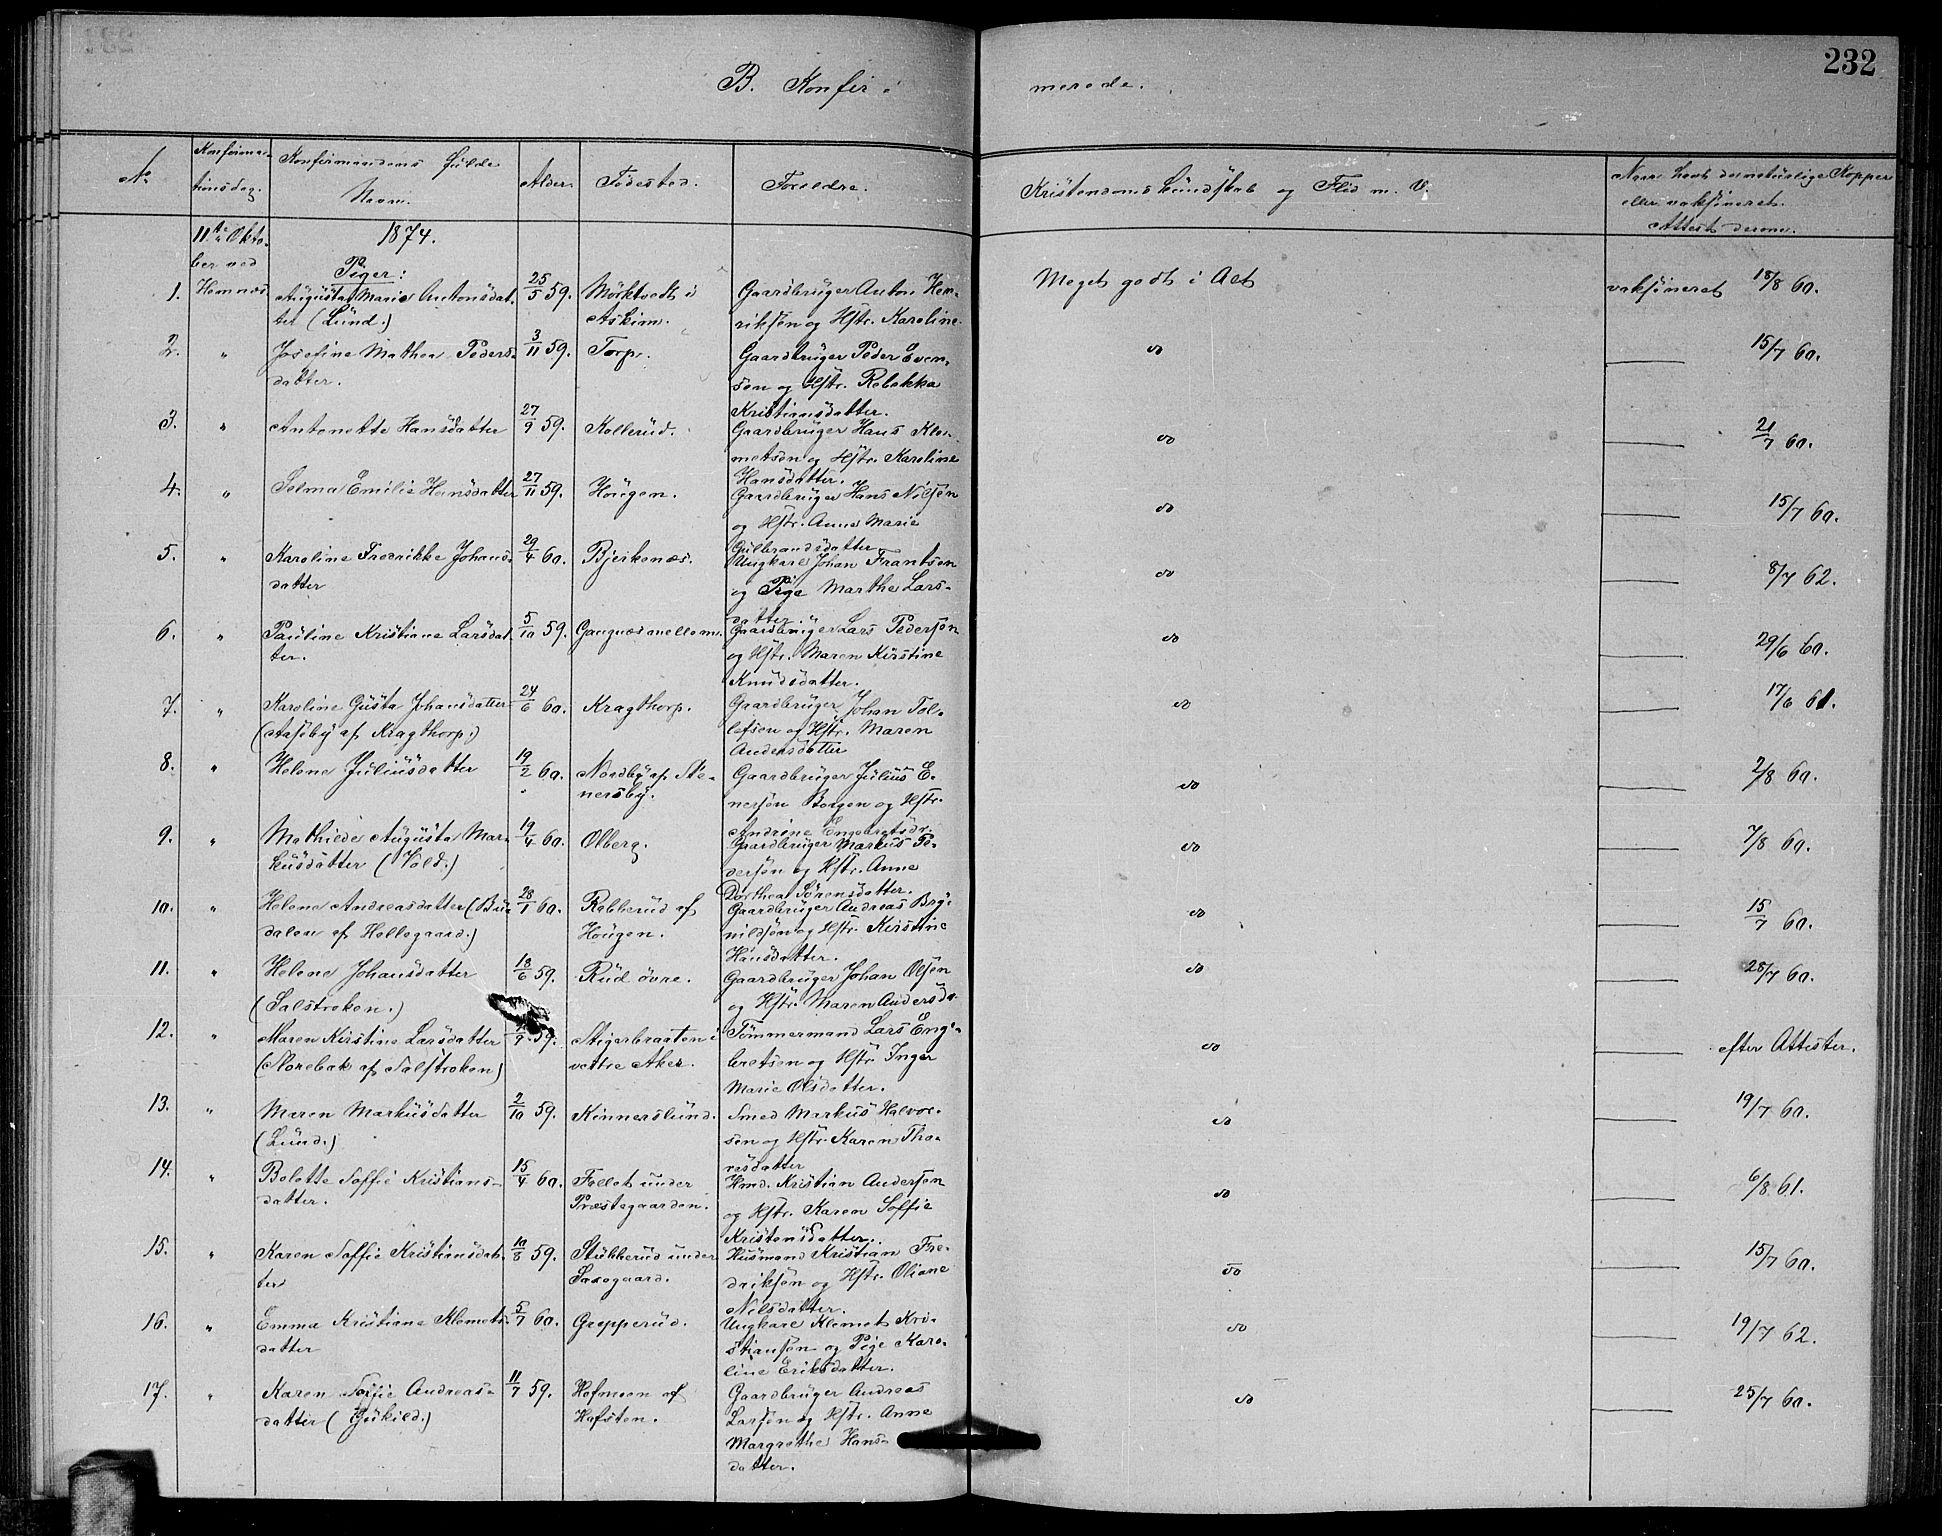 232
B. Konfir-
merede.
No
Konfirma-
tionsdag.
Konfirmandens fulde
Navn.
Alder.
Fødested.
Forældre.
Kristendomskundskab og Flid m. V.
Naar havt de naturlige Kopper
eller vaksineret.
Attest derom.
11te Okto-
ber ved
Hemnæs
1874.
Piger:
1. Augusta Marie Antonsdat-
ter (Lund.)
25/5 59.
Mørktvedt i
Askim.
Gaardbruger Anton Hen-
riksøn og Hstr. Karoline
Meget godt i Alt
vaksineret 18/8 60.
2. " Josefine Mathea Peders-
datter.
3/11 59.
Torp.
Gaardbruger Peder Even-
søn og Hstr. Rebekka
Kristiansdatter.
do
15/7 60.
3. " Antonette Hansdatter
27/9 59.
Kollerud.
Gaardbruger Hans Kle-
metsøn og Hstr. Karoline
Hansdatter.
do
21/7 60.
4. " Selma Emilie Hansdatter
27/11 59.
Hougen.
Gaardbruger Hans Nilsøn
og Hstr. Anne Marie
Gulbrandsdatter.
do
15/7 60.
5. " Karoline Fredrikke Johans-
datter
29/4 60.
Bjerkenæs.
Ungkarl Johan Frantsen
og Pige Marthe Lars-
datter.
do
8/7 62.
6. " Pauline Kristiane Larsdat-
ter.
5/10 59.
Gangnæs mellem.
Gaardbruger Lars Pedersøn
og Hstr. Maren Kirstine
Knudsdatter.
do
29/6 60.
7. " Karoline Gusta Johansdatter
(Aasby af Kragthorp.)
24/6 60.
Kragthorp.
Gaardbruger Johan Tol-
lefsøn og Hstr. Maren
Andersdatter
do
17/6 61.
8. " Helene Juliusdatter
19/2 60.
Nordby af Ste-
nersby.
Gaardbruger Julius E-
nersøn Borgen og Hstr.
Andrine Engebretsdr.
do
2/8 60.
9. " Mathilde Augusta Mar-
kusdatter (Vold.)
19/4 60.
Olberg.
Gaardbruger Markus Pe-
dersøn og Hstr. Anne
Dorthea Sørensdatter.
do
7/8 60.
10. " Helene Andreasdatter (Bu-
dalen af Hellegaard.)
28/1 60.
Rabberud af
Hougen.
Gaardbruger Andreas Bry-
nildsøn og Hstr. Kirstine
Hansdatter.
do
15/7 60.
11. " Helene Johansdatter
(Salstroken.)
18/6 59.
Rud øvre.
Gaardbruger Johan Olsøn
og Hstr. Maren Andersdr.
do
28/7 60.
12. " Maren Kirstine Larsdatter
(Norebak af Salstroken)
59.
Stigerbraaten i
vestre Aker.
Tømmermand Lars Enge-
bretsen og Hstr. Inger
Marie Olsdatter.
do
efter Attester.
13. " Maren Markusdatter
(Lund.)
2/10 59.
Kinnerslund.
Smed Markus Halvor-
søn og Hstr. Karen Tho-
resdatter
do
19/7 60.
14. " Bolette Soffie Kristians-
datter.
15/4 60.
Fallet under
Præstegaarden.
Hmd. Kristian Andersøn
og Hstr. Karen Soffie
Kristensdatter.
do
6/8 61.
15. " Karen Soffie Kristiansdat-
ter
10/8 59.
Stubberud under
Saxegaard.
Husmand Kristian Fre-
driksøn og Hstr. Oliane
Nilsdatter.
do
15/7 60.
16. " Emma Kristiane Klemets-
datter
5/7 60.
Gropperud.
Ungkarl Klemet Kri-
stiansøn og Pige Karo-
line Eriksdatter.
do
19/7 62.
17. " Karen Soffie Andreas-
datter (Gukild.)
11/7 59.
Hofmoen af
Hofsten.
Gaardbruger Andreas
Larsøn og Hstr. Anne
Margrethe Hans-
datter.
do
25/7 60.